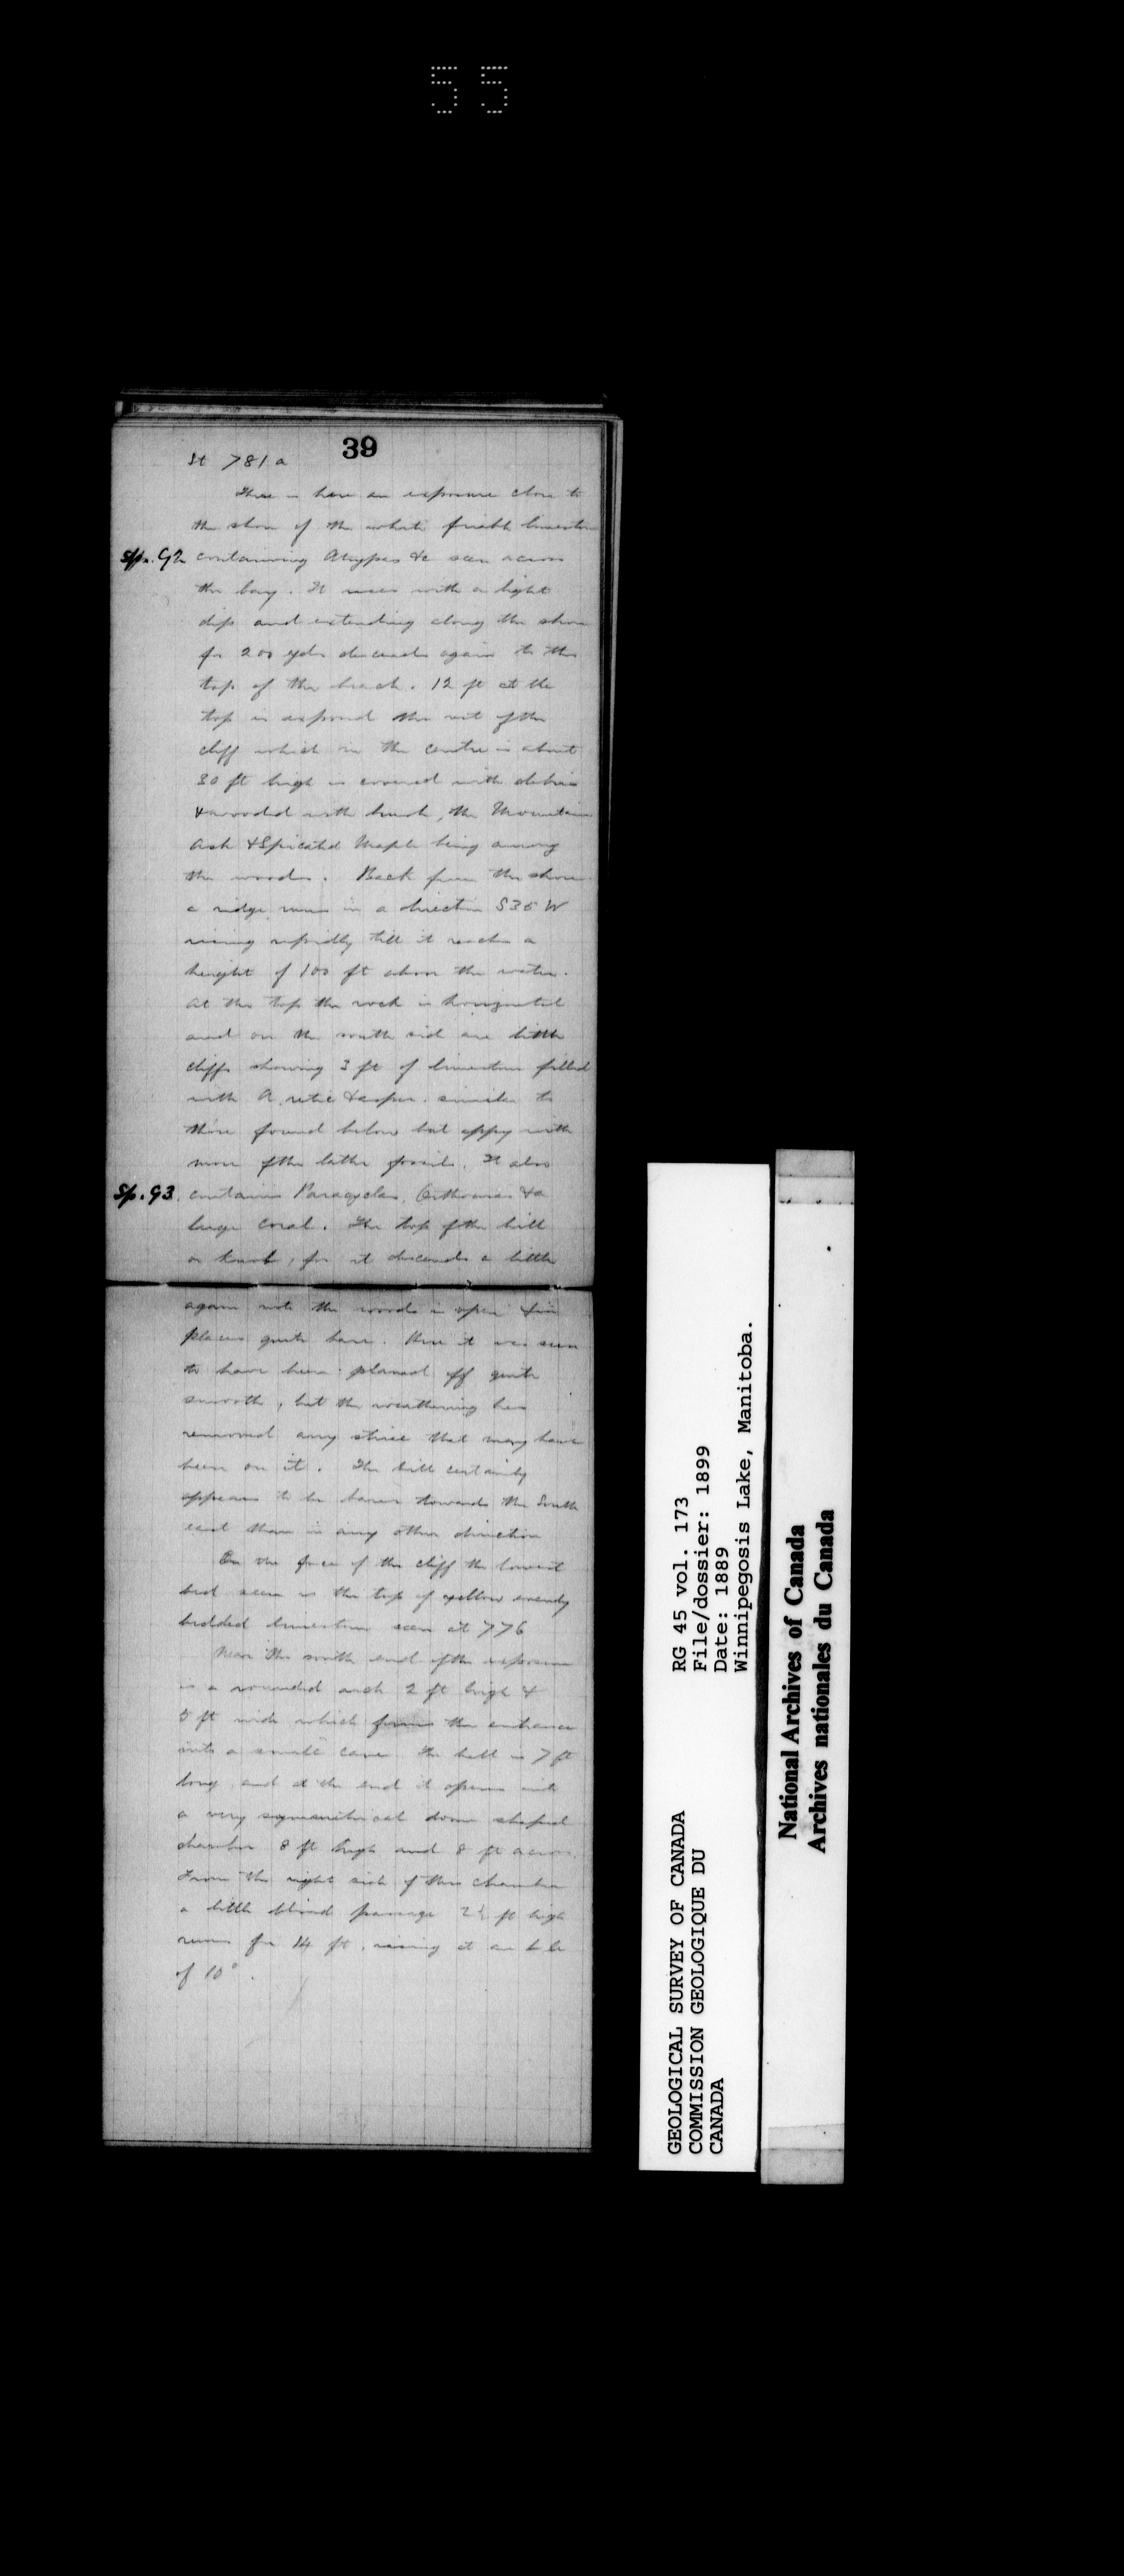 55
39
St 781a
There is here an exposure close to
the shore of the white friable limestone
Sp. 92 containing Atrypas &c seen across
the bay. It rises with a light
dip and extending along the shore
for 200 yds descends again to the
top of the beach. 12 ft at the
top is exposed the rest of the
cliff which in the centre is about
30 ft high is covered with debris
& wooded with brush, the Mountain
Ash & Spicated Maple being among
the woods. Back from the shore
a ridge runs in a direction S35W
rising rapidly till it reaches a
height of 100 ft above the water.
At the top the rock is horizontal
and on the south side are little
cliffs showing 3 ft of limestone filled
with A. retic & asper. similar to
those found below but with
more of the latter fossils. It also
Sp. 93. contains Paracyclas, Orthoceras & a
large coral. The top of the hill
or knob, for it descends a little
again into the woods is open & in
places quite bare. Here it was seen
to have been planed off quite
smooth, but the weathering has
removed any striae that may have
been on it. The hill certainly
appears to be barer towards the South
east than in any other direction
On the face of the cliff the lowest
bed seen is the top of yellow evenly
bedded limestone seen at 776
Near the south end of the exposure
is a rounded arch 2 ft high &
5 ft wide which forms the entrance
into a small cave. The hall is 7 ft
long and at the end it opens into
a very symmetrical dome shaped
chamber 8 ft high and 8 ft across.
From the right side of this chamber
a little blind passage 2½ ft high
runs for 14 ft, rising at an
of 10°.
GEOLOGICAL SURVEY OF CANADA
COMMISSION GEOLOGIQUE DU
CANADA
RG 45 vol. 173
File/dossier: 1899
Date: 1889
Winnipegosis Lake, Manitoba.
National Archives of Canada
Archives nationales du Canada